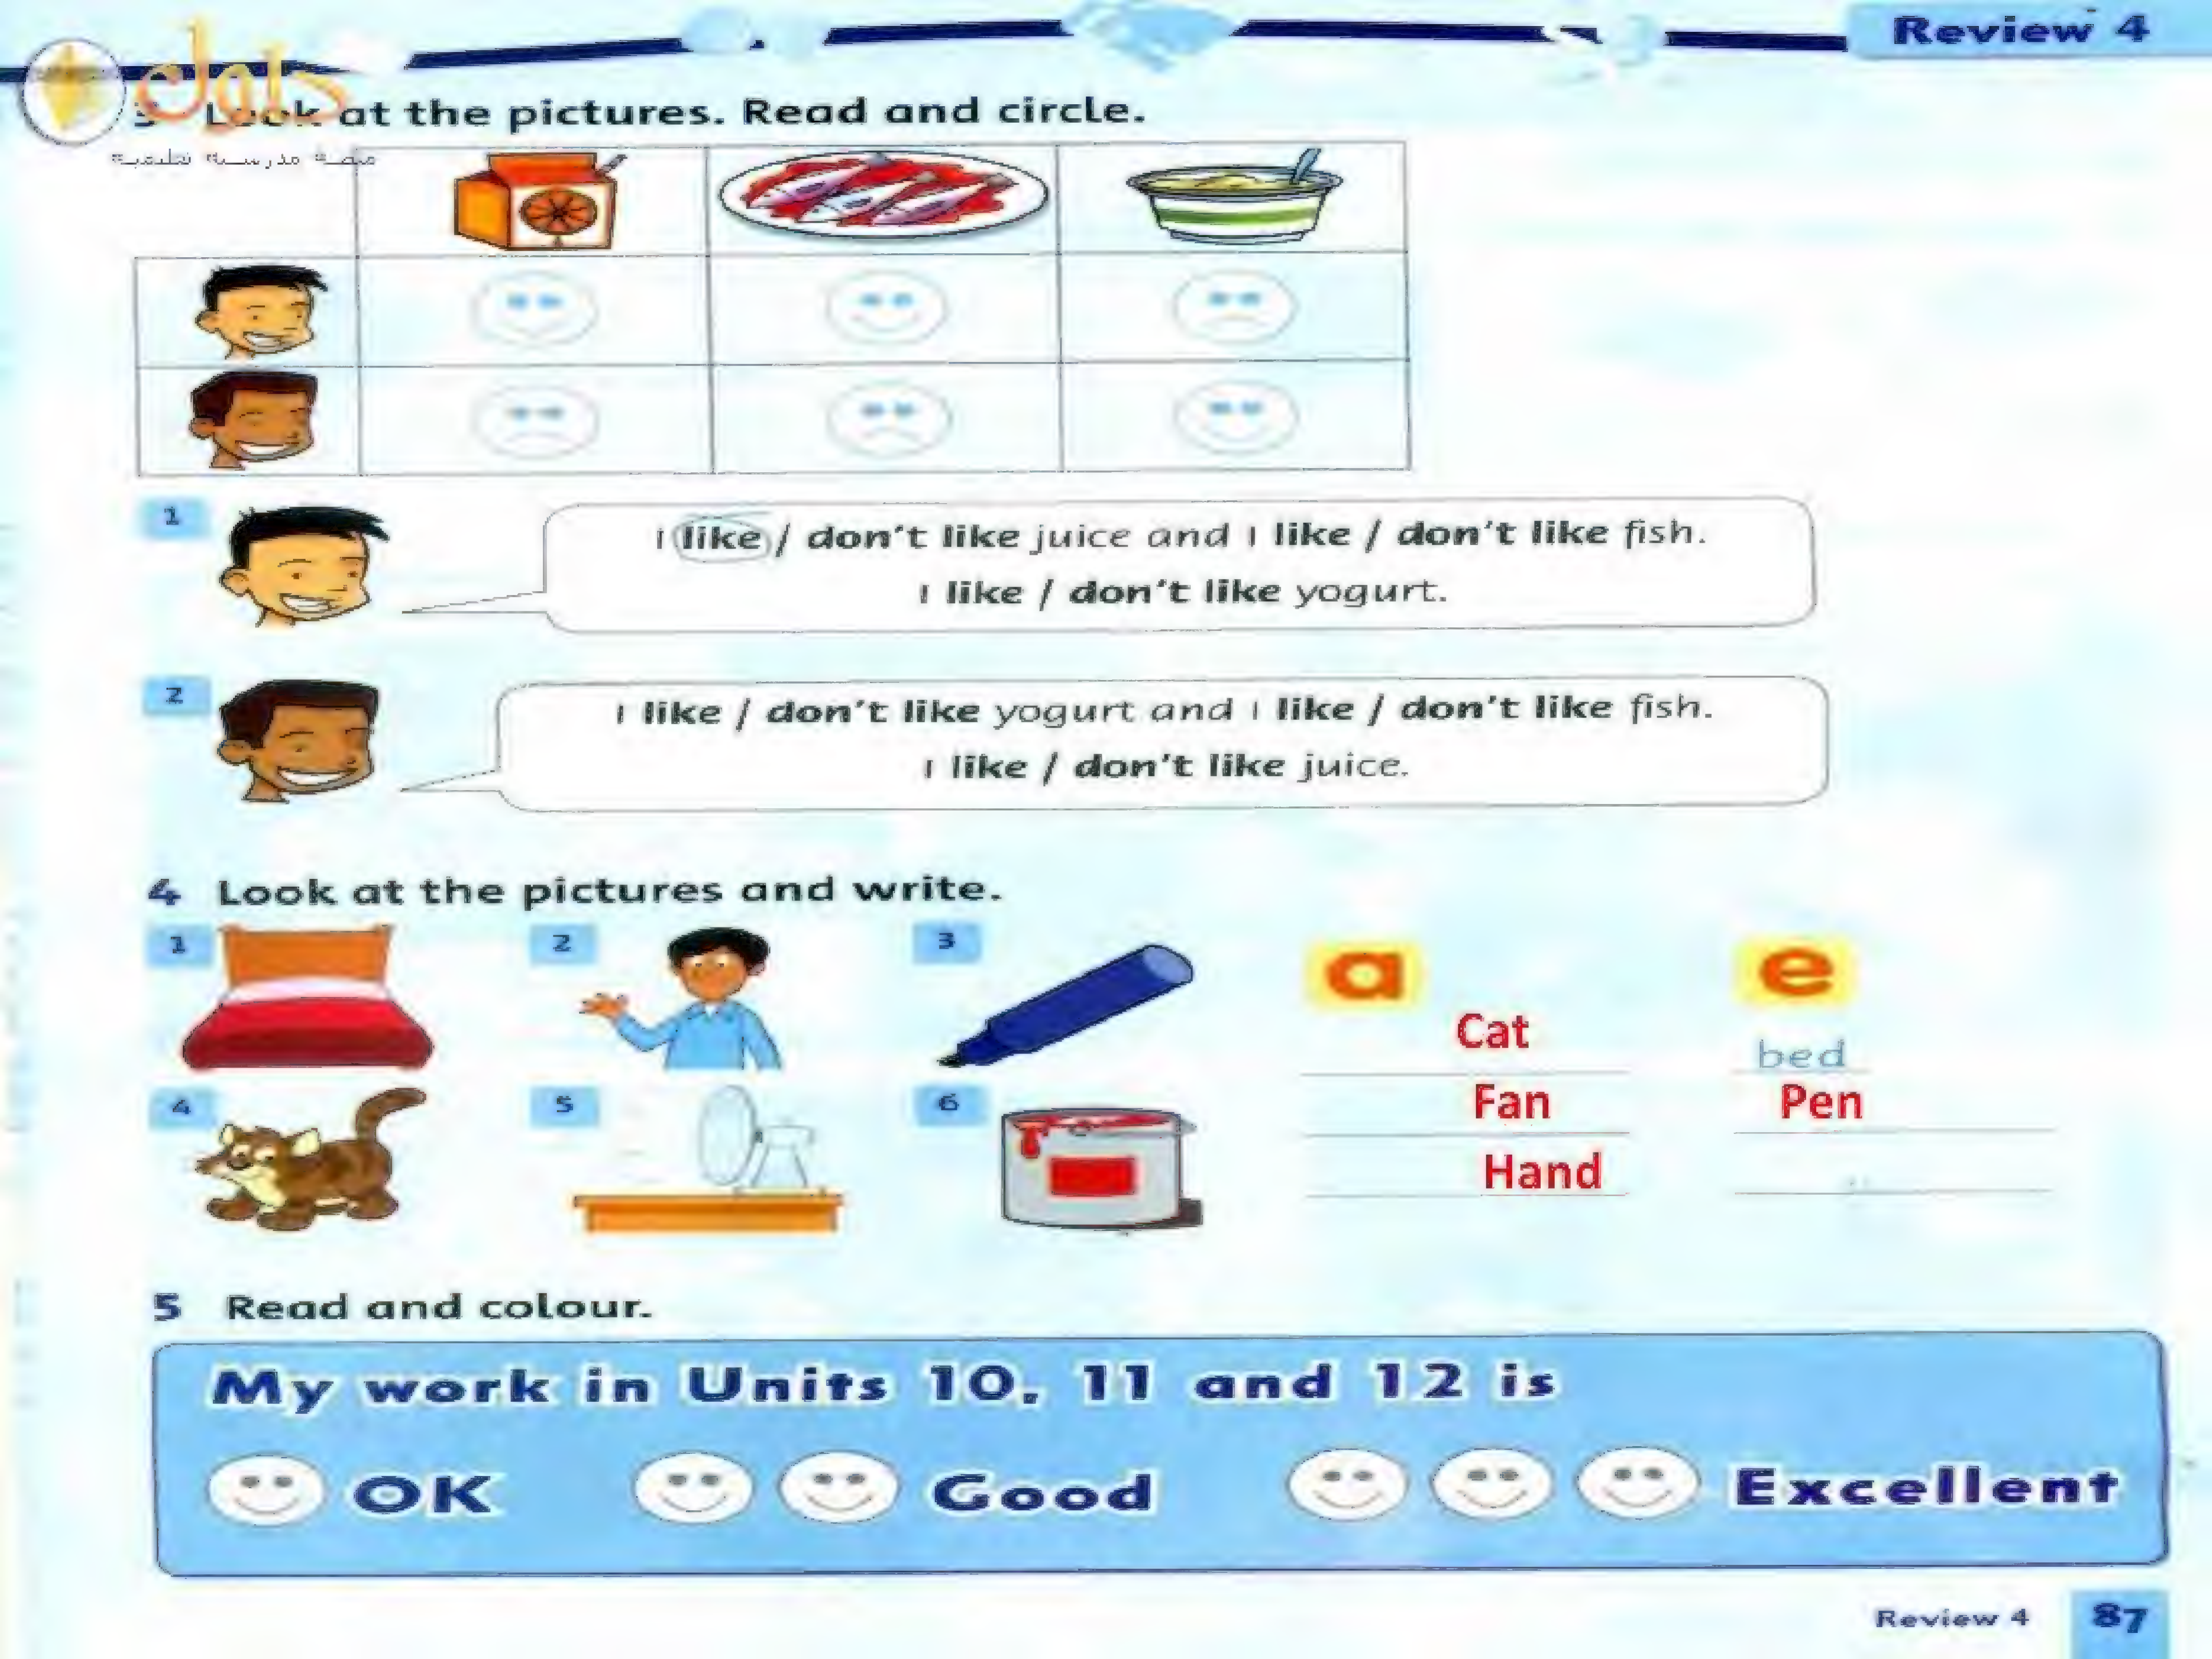 Review 4
داول
منصة مدرسية تعليمية
3 Look at the pictures. Read and circle.
1
I like / don't like juice and I like / don't like fish.
I like / don't like yogurt.
2
I like / don't like yogurt and I like / don't like fish.
I like / don't like juice.
4 Look at the pictures and write.
1
2
3
4
5
6
a
Cat
Fan
Hand
e
bed
Pen
5 Read and colour.
My work in Units 10, 11 and 12 is
OK Good Excellent
Review 4 87